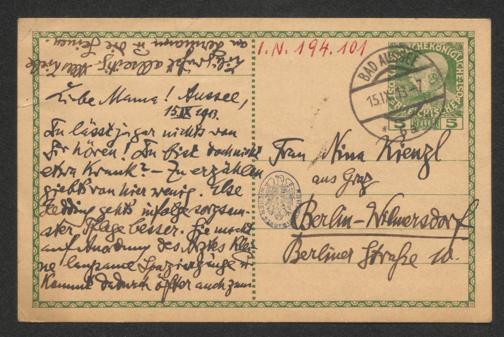 I.N. 194.101
BAD AUSSEE
15.IX.13
5
Liebe Mama! Aussee,
15.IX 1913.
Du lässt ja gar nichts von
Dir hören! Du bist doch nicht
etwa krank? – Zu erzählen
giebt's von hier wenig. Else
geht's infolge sorgsam-
ster Pflege besser. Sie macht
auf Anordnung des Arztes klei-
ne langsame Spaziergänge u.
kommt dadurch öfter auch zum
an Hermann u. die Seinen.
Frau Nina Kienzl
aus Graz
Berlin-Wilmersdorf
Berliner Straße 10.